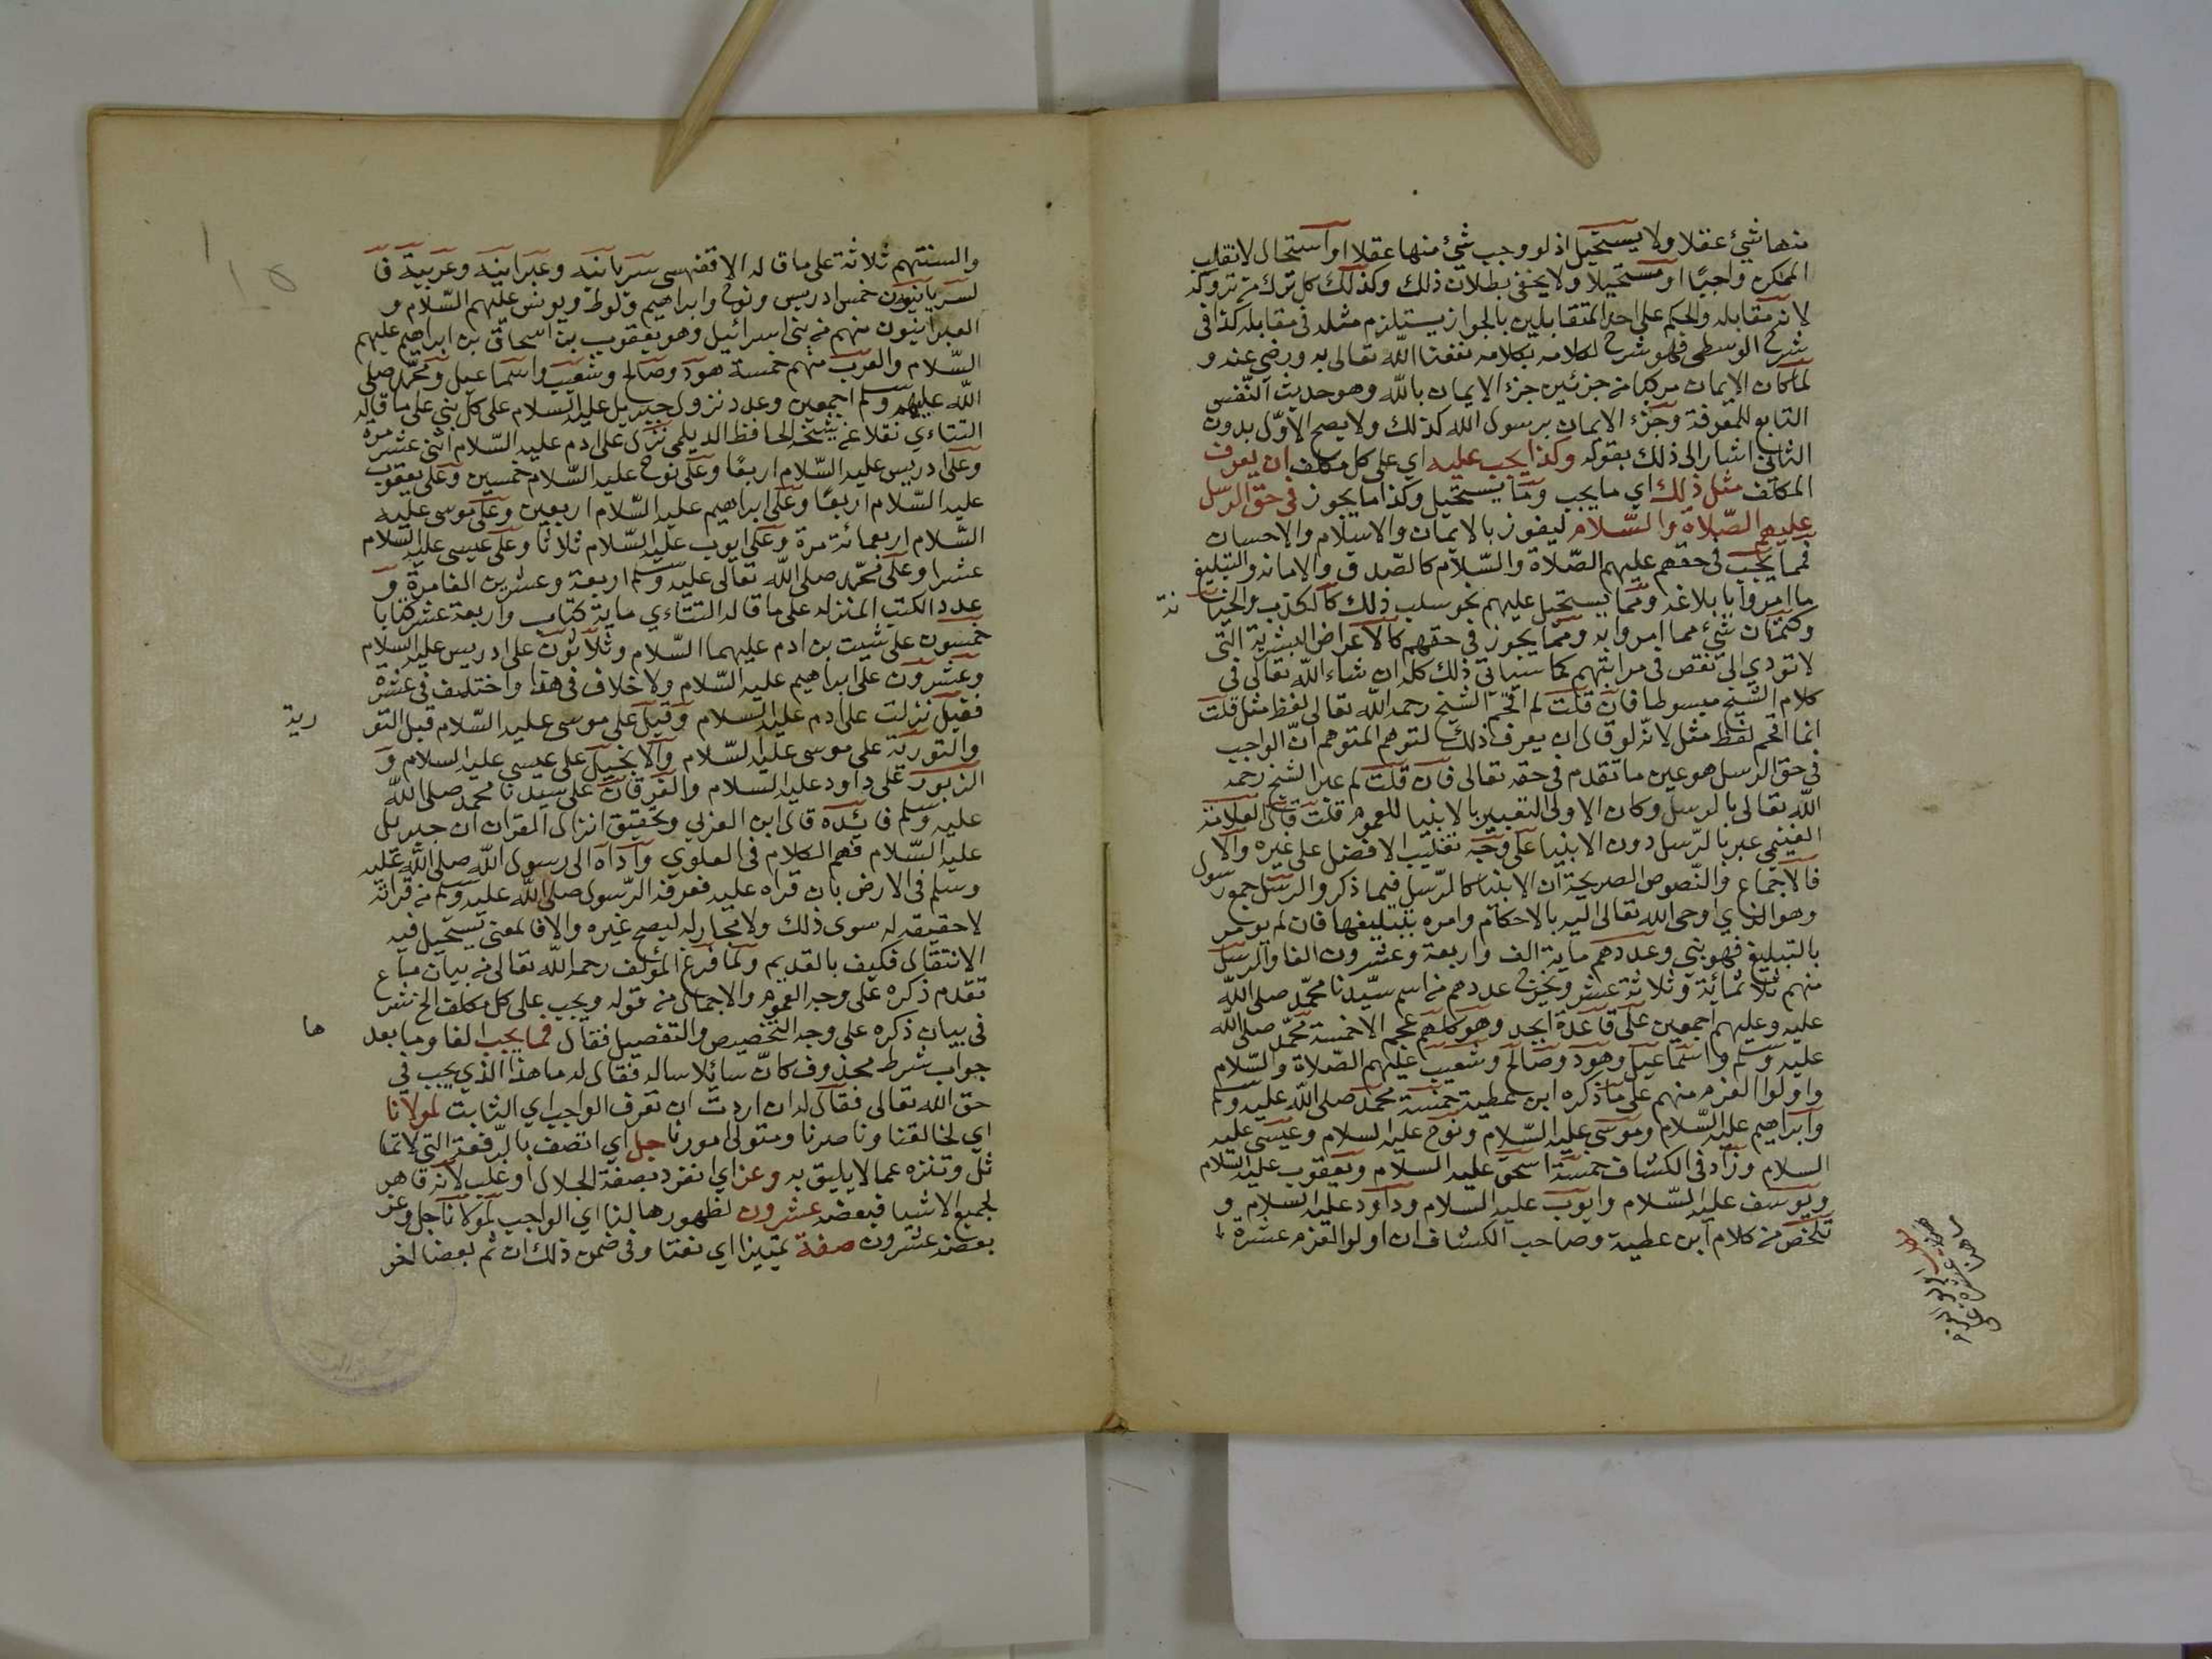 منها شيء عقلا ولا يستحيل اذ لو وجب شيء منها عقلا او استحال لانقلب
الممكن واجبًا او مستحيلا ولا يخفى بطلان ذلك وكذلك كل ترك من تروكه
لانه مقابله والحكم على احد المتقابلين بالجواز يستلزم مثله في مقابله كذا في
شرح الوسطى فهو شرح لكلامه بكلامه نفعنا الله تعالى به ورضي عنه و
لما كان الإيمان مركبا من جزئين جزء الايمان بالله وهو حديث النّفس
التابع للمعرفة وجزء الايمان برسول الله كذلك ولا يصح الاوّل بدون
الثاني اشار الى ذلك بقوله وكذا يجب عليه اي على كل مكلف ان يعرف
المكلف مثل ذلك اي ما يجب وما يستحيل وكذا ما يجوز في حق الرسل
عليهم الصّلاة والسّلام ليفوز بالايمان والاسلام والاحسان
فمما يجب في حقهم عليهم الصّلاة والسّلام كالصّدق والامانه والتبليغ
ما امروا بابلاغه ومما يستحيل عليهم نحو سلب ذلك كالكذب والخيا نة
وكتمان شيء مما امروا به ومما يجوز في حقهم كالاعراض البشرية التي
لا تودي الى نقص في مراتبهم كما سياتي ذلك كله ان شاء الله تعالى في
كلام الشيخ مبسوطا فان قلت لم اقحم الشيخ رحمه الله تعالى لفظ مثل قلت
انما اقحم لفظ مثل لانّه لو قال ان يعرف ذلك لتوهم المتوهم انّ الواجب
في حق الرسل هو عين ما تقدم في حقه تعالى فان قلت لم عبر الشيخ رحمه
الله تعالى بالرسل وكان الاولى التعبير بالانبيا للعموم قلت قال العلامة
الغنيمي عبر بالرّسل دون الانبيا على وجه تغليب الافضل على غيره والا
فالاجماع والنّصوص الصريحة ان الانبيا كالرّسل فيما ذكر والرسل جمع رسول
وهو الذي اوحى الله تعالى اليه بالاحكام وامره بتبليغها فان لم يومر
بالتبليغ فهو نبي وعددهم ماية الف واربعة وعشرون الفا والرسل
منهم ثلاثمائة وثلاثة عشر ويخرج عددهم من اسم سيّدنا محمّد صلى الله
عليه وعليهم اجمعين على قاعدة ابجد وهو كلهم عجم الا خمسة محمّد صلى الله
عليه وسلم واسماعيل وهود وصالح وشعيب عليهم الصّلاة والسّلام
واولوا العزم منهم على ما ذكره ابن عطية خمسة محمد صلى الله عليه وسلم
وابراهيم عليه السّلام وموسى عليه السّلام ونوح عليه السلام وعيسى عليه
السلام وزاد في الكشاف خمسة اسحق عليه السلام ويعقوب عليه السلام
ويوسف عليه السّلام وايوب عليه السلام وداود عليه السلام و
تلخص من كلام ابن عطية وصاحب الكشاف ان اولوا العزم عشرة
والسنتهم ثلاثة على ما قاله الاقفهسي سريانيه وعبرانيه وعربية فا
لسريانيون خمس ادريس ونوح وابراهيم ولوط ويونس عليهم السّلام و
العبرانيون منهم من بني اسرائيل وهو يعقوب بن اسحاق بن ابراهيم عليهم
السّلام والعرب منهم خمسة هود وصالح وشعيب واسماعيل ومحمّد صلى
الله عليهم وسلم اجمعين وعدد نزول جبريل عليه السلام على كل نبي على ما قاله
التتاءي نقلا عن شيخه الحافظ الديلمي نزل على ادم عليه السّلام اثنى عشر مرة
وعلى ادريس عليه السّلام اربعًا وعلى نوح عليه السّلام خمسين وعلى يعقوب
عليه السّلام اربعًا وعلى ابراهيم عليه السّلام اربعين وعلى موسى عليه
السّلام اربعمائة مرة وعلى ايوب عليه السّلام ثلاثا وعلى عيسى عليه السّلام
عشرا وعلى محمّد صلى الله تعالى عليه وسلم اربعة وعشرين الفا مرة و
عدد الكتب المنزله على ما قاله التتاءي ماية كتاب واربعة عشر كتابا
خمسون على شيت بن ادم عليهما السّلام وثلاثون على ادريس عليه السلام
وعشرون على ابراهيم عليه السّلام ولا خلاف في هذا واختلف في عشرة
فقيل نزلت على ادم عليه السلام وقيل على موسى عليه السّلام قبل التو رية
والتورية على موسى عليه السّلام والانجيل على عيسى عليه السلام و
الزبور على داود عليه السلام والفرقان على سيدنا محمد صلى الله
عليه وسلم فائده قال ابن العزبي وتحقيق انزال القران ان جبريل
عليه السّلام فهم الكلام في العلوي واداه الى رسول الله صلى الله عليه
وسلم في الارض بان قراه عليه فعرفه الرّسول صلى الله عليه وسلم من قراته
لا حقيقه له سوى ذلك ولا مجاز له ليصح غيره والا فالمعنى يستحيل فيه
الانتقال فكيف بالقديم ولما فرغ المؤلف رحمه الله تعالى من بيان
تقدم ذكره على وجه العموم والاجمال من قوله ويجب على كل مكلف الخ شرع
في بيان ذكره على وجه التخصيص والتفصيل فقال فمما يجب الفا وما بعد ها
جواب شرط محذوف كانّ سائلا ساله فقال له ما هذا الذي يجب في
حق الله تعالى فقال له ان اردت ان تعرف الواجب اي الثابت لمولانا
اي لخالقنا وناصرنا ومتولى امورنا جل اي اتصف بالرّفعة التي لا تما
ثل وتنزه عما لا يليق به وعز اي انفرد بصفة الجلال او غلب لانه قاهر
لجميع الاشيا فبعضه عشرون لظهورها لنا اي الواجب لمولانا جل وعز
بعضه عشرون صفة تمييزا اي نعتا وفي ضمن ذلك ان ثم بعضا اخر